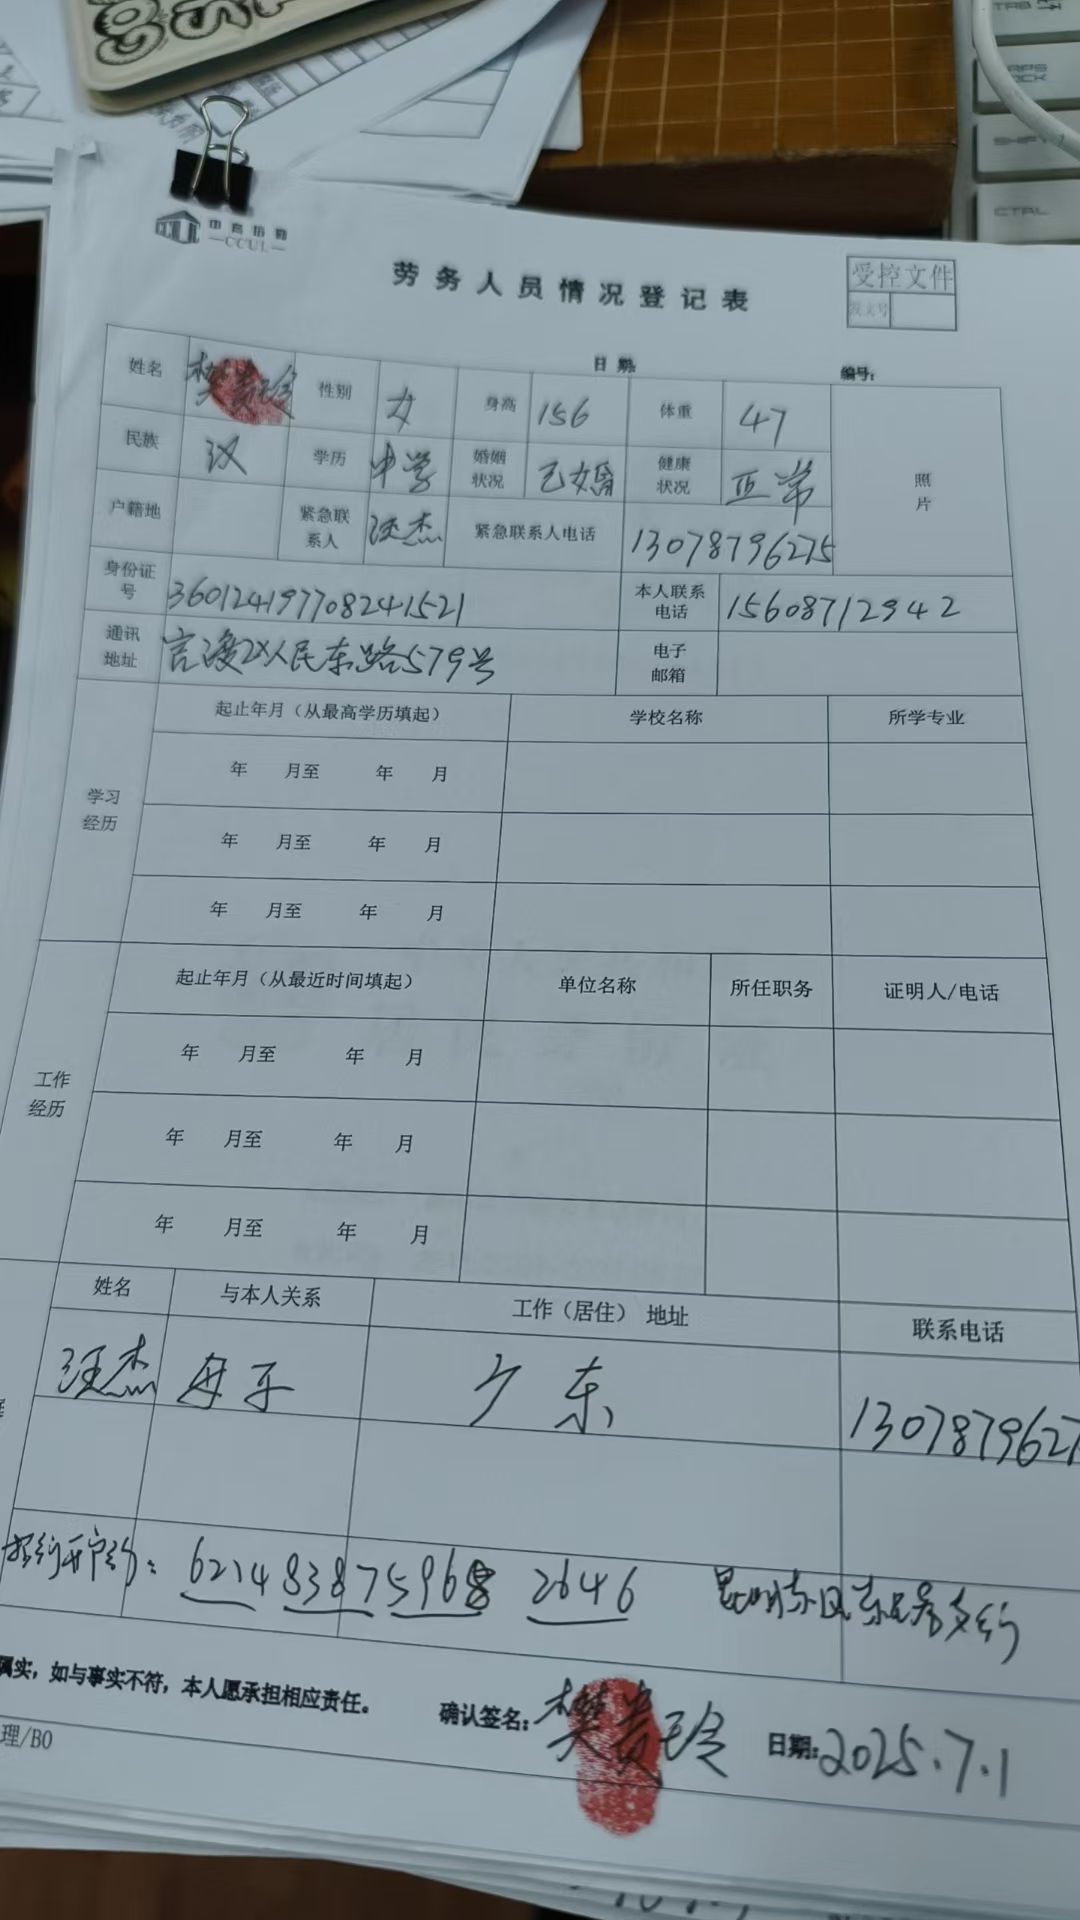 中房裕勤
—CCUL—
劳务人员情况登记表
受控文件
日期: 编号:
姓名 樊贵玲 性别 女 身高 156 体重 47
照片
民族 汉 学历 中学 婚姻状况 已婚 健康状况 正常
户籍地 紧急联系人 汪杰 紧急联系人电话 13078796275
身份证号 360124197708241521 本人联系电话 15608712942
通讯地址 官渡区人民东路579号 电子邮箱
学习经历
起止年月（从最高学历填起） 学校名称 所学专业
年 月至 年 月
年 月至 年 月
年 月至 年 月
工作经历
起止年月（从最近时间填起） 单位名称 所任职务 证明人/电话
年 月至 年 月
年 月至 年 月
年 月至 年 月
姓名 与本人关系 工作（居住）地址 联系电话
汪杰 母子 广东 1307879627
招行开户行: 6214 8387 5968 2646 昆明东风东路支行
属实，如与事实不符，本人愿承担相应责任。 确认签名: 樊贵玲 日期: 2025.7.1
理/B0
TAB
CTRL